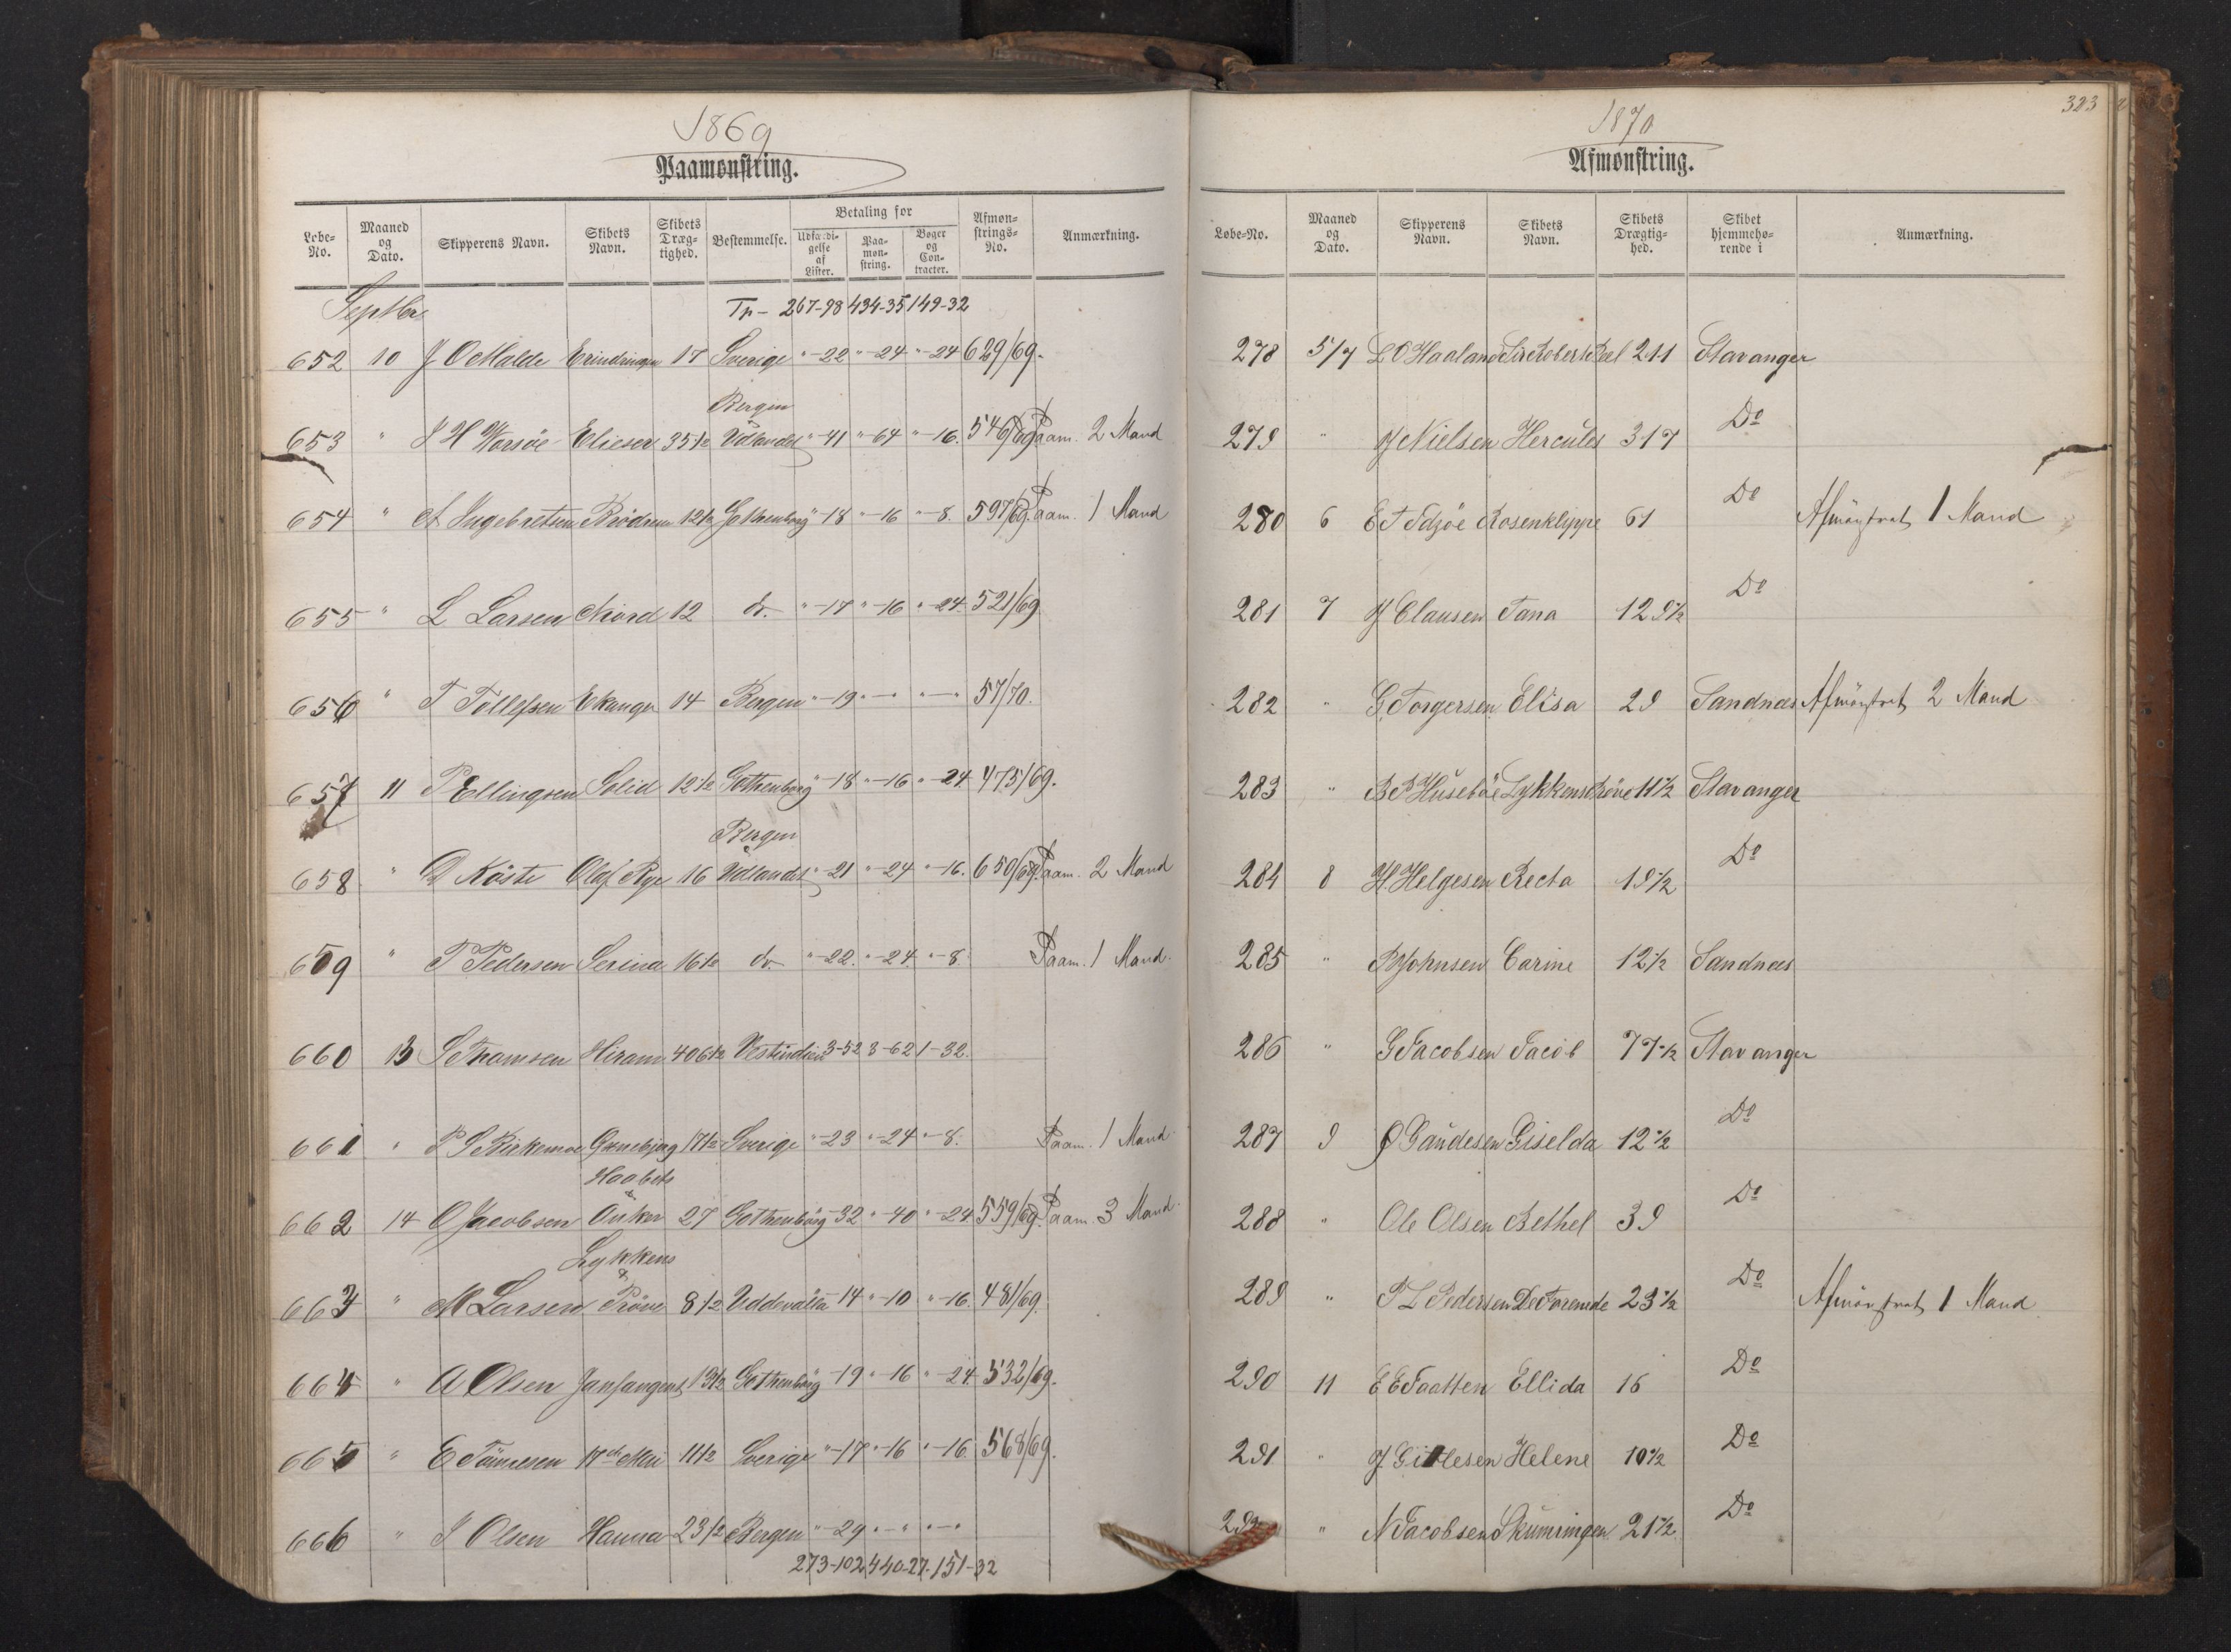 1869
Paamønstring.
Løbe-No. Maaned og Dato. Skipperens Navn. Skibets Navn. Skibets Dræg-tighed. Bestemmelse. Betaling for Udfærdi-gelse af Lister. Paa-møn-string. Bøger og Con-tracter. Afmøn-strings-No. Anmærkning.
Septbr
Tr - 267-98 434-35 149-32
652 10 J O Malde Erindringen 17 Sverige "-22 "-24 "-24 629/69.
Bergen
653 " J H Worsöe Elieser 35 1/2 Udlandet "-41 "-64 "-16. 546/69 Paam. 2 Mand
654 " A Ingebretsen Brödrene 12 1/2 Gothenborg "-18 "-16 "-8. 597/69. Paam. 1 Mand
655 " L Larsen Niord 12 do. "-17 "-16 "-24. 521/69.
656 " T Tollefsen Ekanger 14 Bergen "-19 "-" "-" 57/70.
657 11 P Ellingsen Solid 12 1/2 Gothenborg "-18 "-16 "-24. 475/69.
Bergen
658 " D Köste Olaf Rye 16 Udlandet "-21 "-24 "-16. 650/69. Paam. 2 Mand
659 " T Pedersen Serina 16 1/2 do. "-22. "-24. "-8. Paam. 1 Mand.
660 13 S Thomsen Hiram 406 1/2 Vestindien 3-52 3-62 1-32.
661 " P S Birkemoe Gunebjørg 17 1/2 Sverige "-23 "-24 "-8. Paam. 1 Mand.
Haabets
662 14 O Jacobsen Anker 27 Gothenborg "-32 "-40 "-24 559/69. Paam. 3 Mand.
Lykkens
663 " M Larsen Pröve 8 1/2 Uddevalla 14 "-10 "-16. 481/69.
664 " A Olsen 13 1/2 Gothenborg "-19 "-16 "-24. 532/69.
665 " E Tönnesen 17de Mai 11 1/2 Sverige "-17 "-16 "-16. 568/69.
666 " J Olsen Hanna 23 1/2 Bergen "-29 "-" "-"
273-102 440-27. 151-32
323
1870
Afmønstring.
Løbe-No. Maaned og Dato. Skipperens Navn. Skibets Navn. Skibets Drægtig-hed. Skibet hjemmehø-rende i Anmærkning.
278 5/7 L O Haaland Sir Robert Peel 211 Stavanger
279 " J Nielsen Hercules 317 Do
280 6 E T Rosenklippe 61 Do Afmönstret 1 Mand
281 7 J Clausen Tana 129 1/2 Do
282 " G. Torgersen Elisa 29 Sandnæs Afmönstret 2 Mand
283 " B B Huseböe Lykkens Pröve 11 1/2 Stavanger
284 8 H. Helgesen Recta 19 1/2 Do
285 " B Johnsen Carine 12 1/2 Sandnæs
286 " G Jacobsen Jacob 77 1/2 Stavanger
287 9 O Gaudesen Giselda 12 1/2 Do
288 " Ole Olsen Bethel 39 Do
289 " P L Pedersen De Foremde 23 1/2 Do Afmönstret 1 Mand
290 11 E E Taatten Ellida 16 Do
291 " J. Gitlesen Helene 10 1/2 Do
292 " N Jacobsen Skumringen 21 1/2 Do